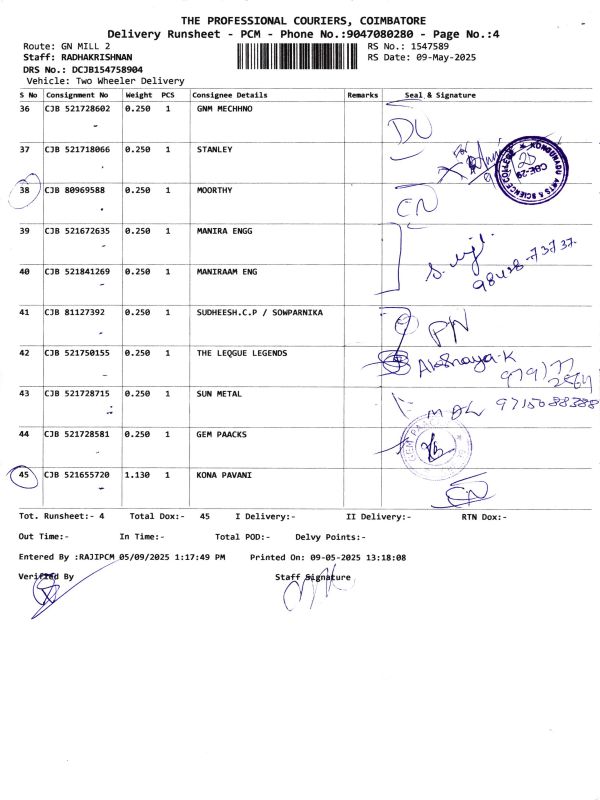 THE PROFESSIONAL COURIERS, COIMBATORE
Delivery Runsheet - PCM - Phone No.:9047080280 - Page No.:4
Route: GN MILL 2
RS No.: 1547589
Staff: RADHAKRISHNAN
RS Date: 09-May-2025
DRS No.: DCJB154758904
Vehicle: Two Wheeler Delivery
S No Consignment No Weight PCS Consignee Details Remarks Seal & Signature
36 CJB 521728602 0.250 1 GNM MECHHNO
DU
37 CJB 521718066 0.250 1 STANLEY
For
KONGUNADU ARTS & SCIENCE COLLEGE
CBE-29
38 CJB 80969588 0.250 1 MOORTHY
CN
39 CJB 521672635 0.250 1 MANIRA ENGG
98428-73737
40 CJB 521841269 0.250 1 MANIRAAM ENG
41 CJB 81127392 0.250 1 SUDHEESH.C.P / SOWPARNIKA
PN
42 CJB 521750155 0.250 1 THE LEQGUE LEGENDS
Akshaya-K
43 CJB 521728715 0.250 1 SUN METAL
9715088388
44 CJB 521728581 0.250 1 GEM PAACKS
GEM PAACKS
45 CJB 521655720 1.130 1 KONA PAVANI
CN
Tot. Runsheet:- 4 Total Dox:- 45 I Delivery:- II Delivery:- RTN Dox:-
Out Time:- In Time:- Total POD:- Delvy Points:-
Entered By :RAJIPCM 05/09/2025 1:17:49 PM Printed On: 09-05-2025 13:18:08
Verified By Staff Signature